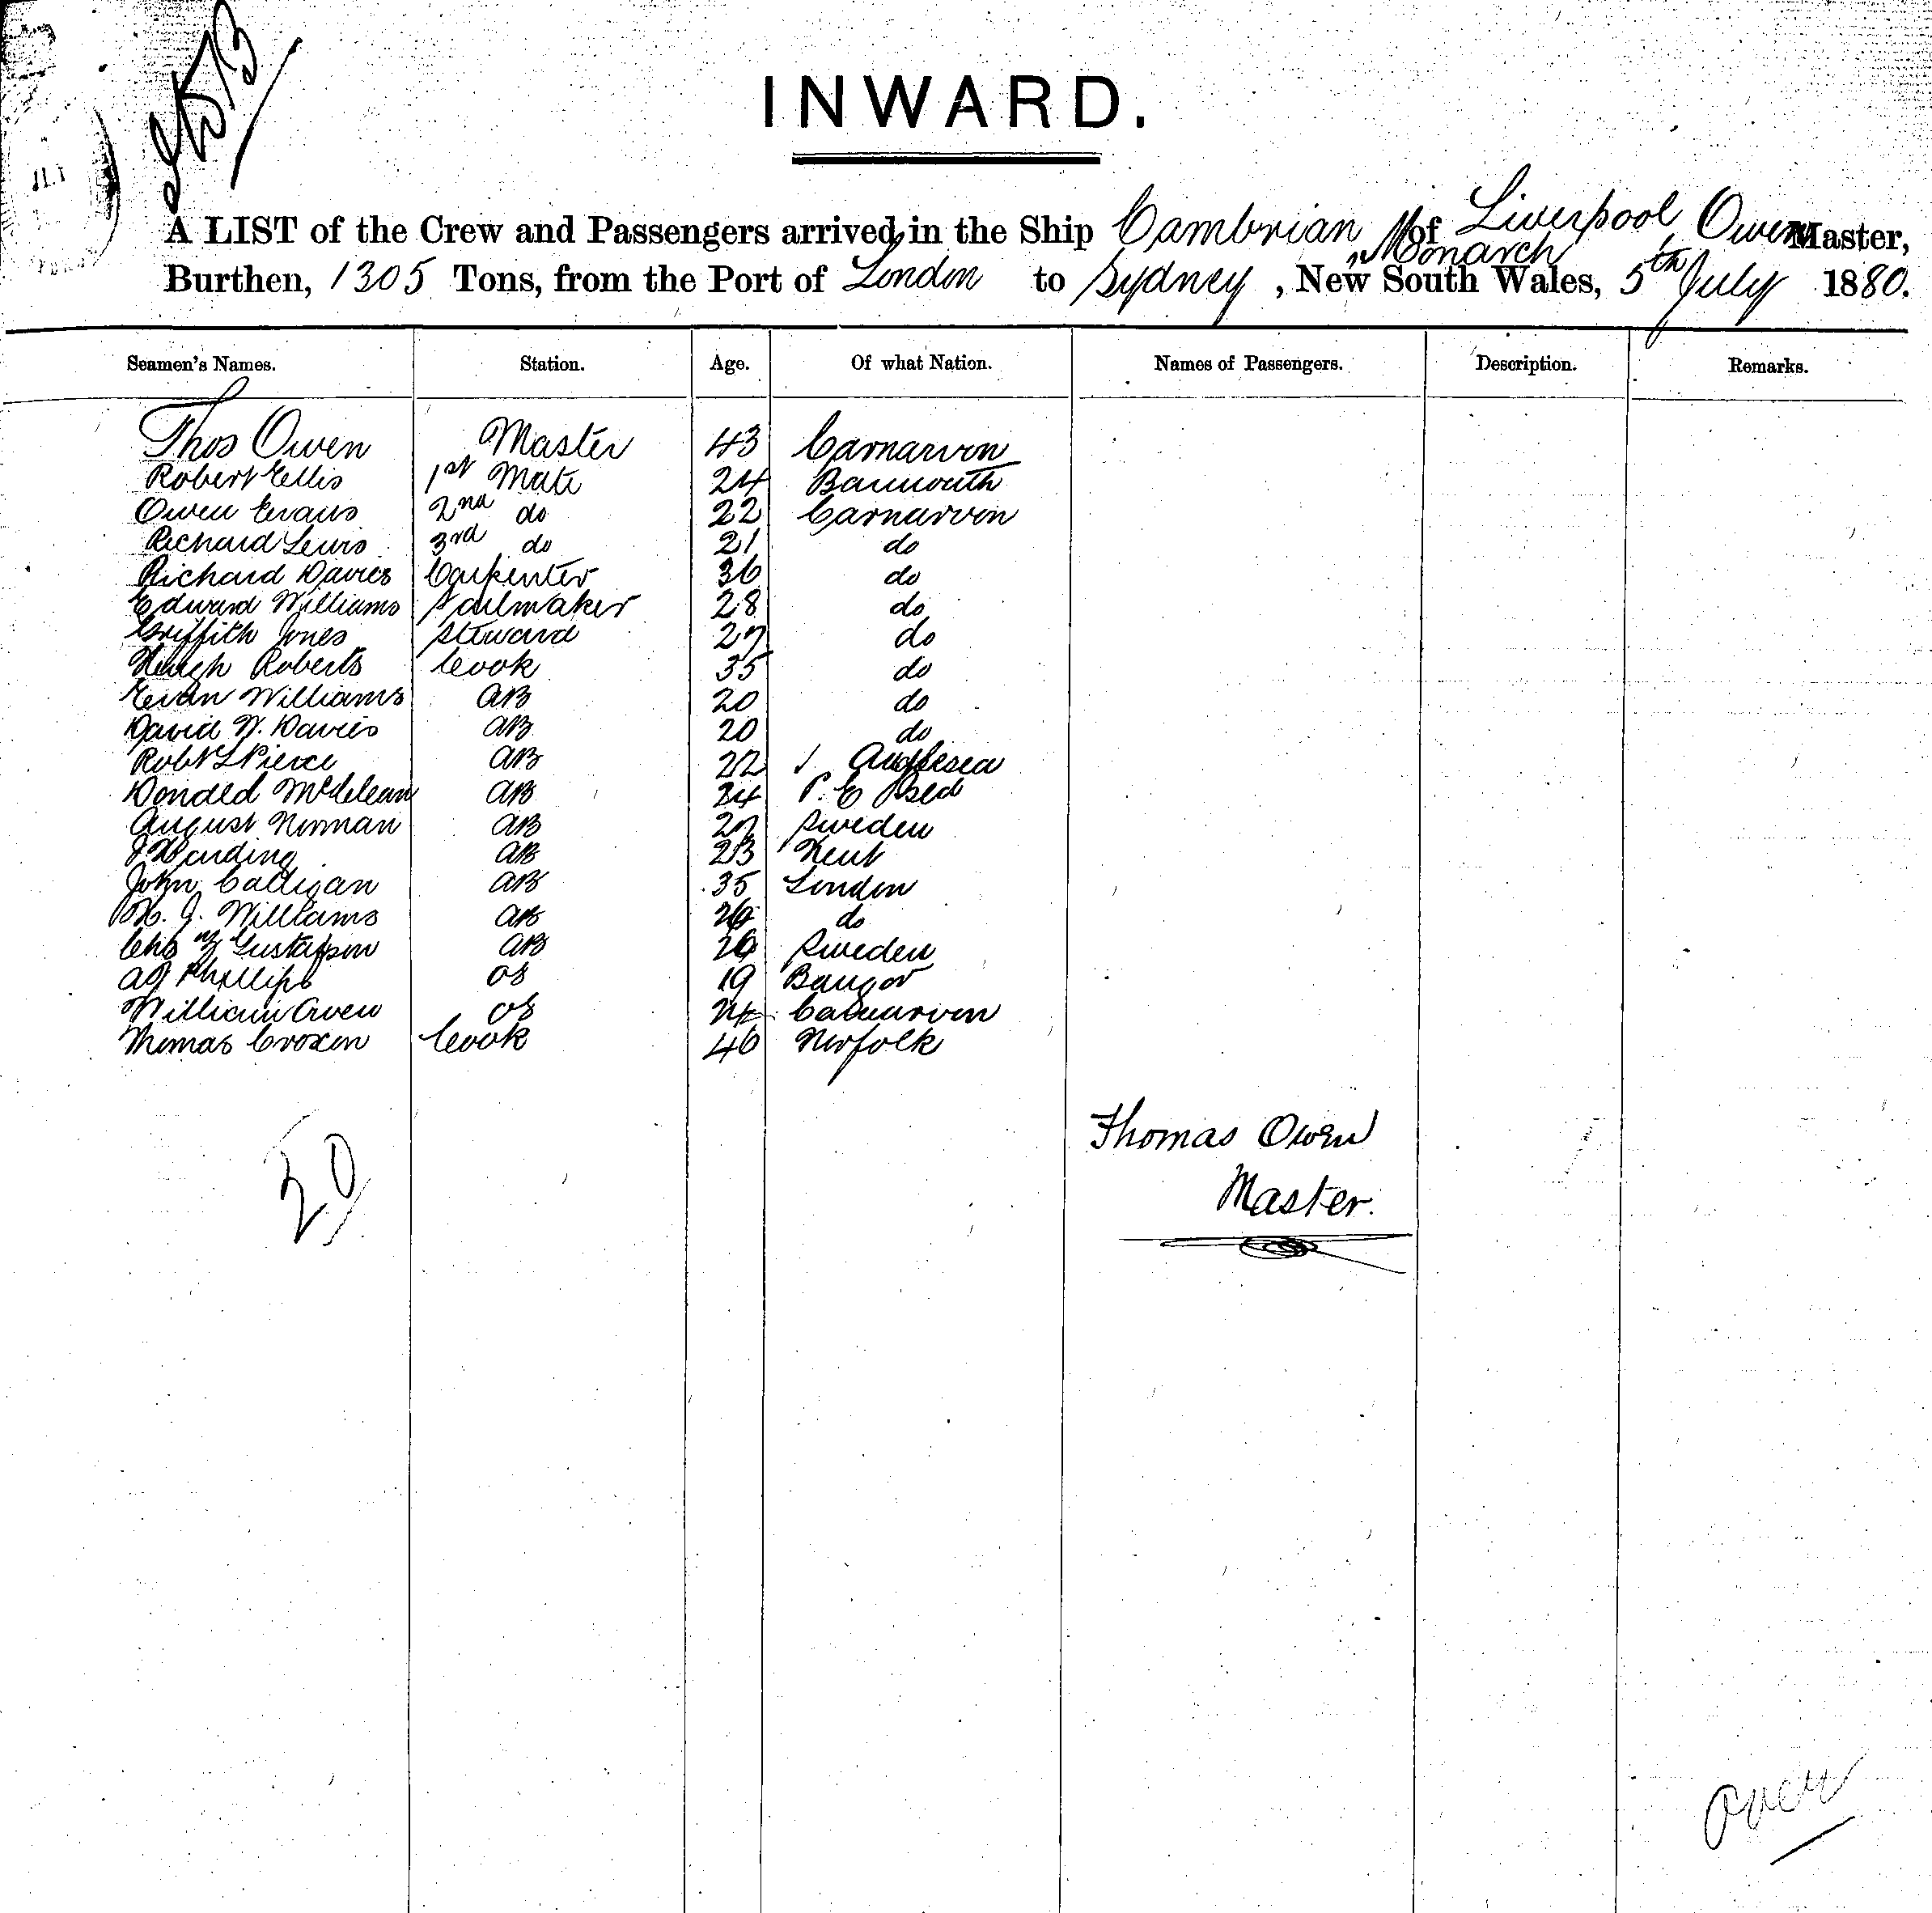 INWARD.
A LIST of the Crew and Passengers arrived in the Ship Cambrian Monarch of Liverpool Owen Master,
Burthen, 1305 Tons, from the Port of London to Sydney, New South Wales, 5th July 1880.
Seamen's Names. Station. Age. Of what Nation. Names of Passengers. Description. Remarks.
Thos Owen Master 43 Carnarvon
Robert Ellis 1st Mate 24 Barmouth
Owen Evans 2nd do 22 Carnarvon
Richard Lewis 3rd do 21 do
Richard Davies Carpenter 36 do
Edward Williams Sailmaker 28 do
Griffith Jones Steward 27 do
Hugh Roberts Cook 35 do
Evan Williams AB 20 do
David W. Davies AB 20 do
Robt L Pierce AB 22 Anglesea
Donald McClean AB 34 P. E Isld
August Norman AB 27 Sweden
J Harding AB 23 Kent
John Calligan AB 35 London
H. J. Williams AB 26 do
Chs Gustafson AB Sweden
AJ Phillips OS 19 Bangor
William Owen OS 24 Carnarvon
Thomas Croxon Cook 46 Norfolk
Thomas Owen
Master.
20
over